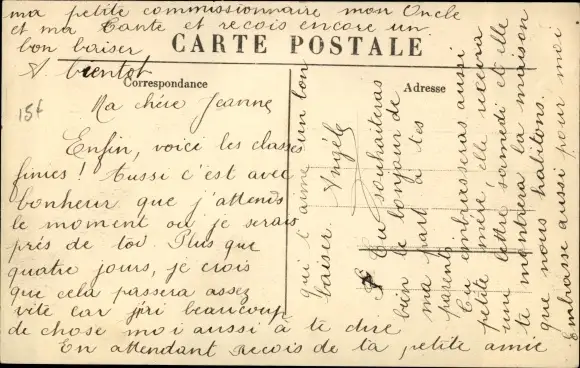 CARTE POSTALE
Correspondance
Adresse
15f
Ma chère Jeanne
Enfin, voici les classes
finies ! Aussi c'est avec
bonheur que j'attends
le moment où je serais
près de toi. Plus que
quatre jours, je crois
que cela passera assez
vite car j'ai beaucoup
de chose moi aussi à te dire
En attendant reçois de ta petite amie
qui t'aime un bon
baiser. Angèle
Tu souhaiteras
bien le bonjour de
ma part à tes
parents
Tu embrasseras aussi
petite mère, elle recevra
une lettre samedi et elle
te montrera la maison
que nous habitons.
Embrasse aussi pour moi
ma petite commissionnaire mon Oncle
et ma Tante et reçois encore un
bon baiser
A bientôt